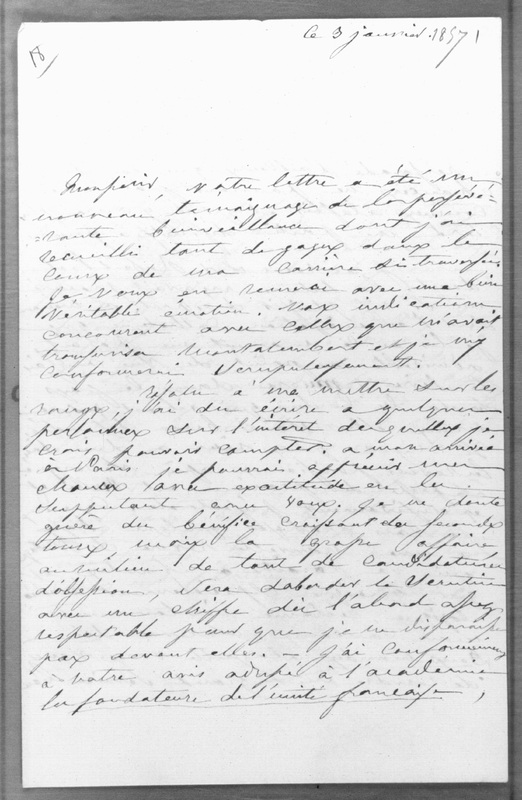 le 3 janvier 1857
18
Monsieur, Votre lettre a été un
nouveau témoignage de la persévé=
=rante bienveillance dont j'ai
recueilli tant de gages dans le
cours de ma carrière si traversée
Je vous en remercie avec une bien
Véritable émotion. Vos indications
concourent avec celles que m'avait
transmises Montalembert et je m'y
conformerai scrupuleusement.
Résolu à me mettre sur les
rangs, j'ai du écrire à quelques
personnes sur l'intéret desquelles je
crois pouvoir compter. à mon arrivée
à Paris je pourrai apprécier mes
chances avec exactitude en les
supputant avec vous. Je ne doute
guère du bénéfice croissant des seconds
tours mais la grosse affaire
au milieu de tant de candidatures
sera d'aborder le Scrutin
avec un chiffre dès l'abord assez
respectable pour que je ne disparaisse
pas devant elles. — J'ai conformément
à votre avis adressé à l'académie
les fondateurs de l'unité française,